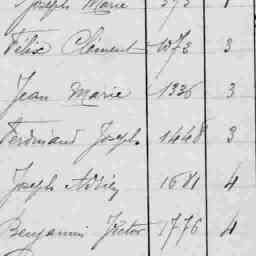 Joseph Marie
Félix Clément 1373 3
Jean Marie 1336 3
Ferdinand Joseph 1448 3
Joseph 1681 4
Benjamin Victor 1776 4